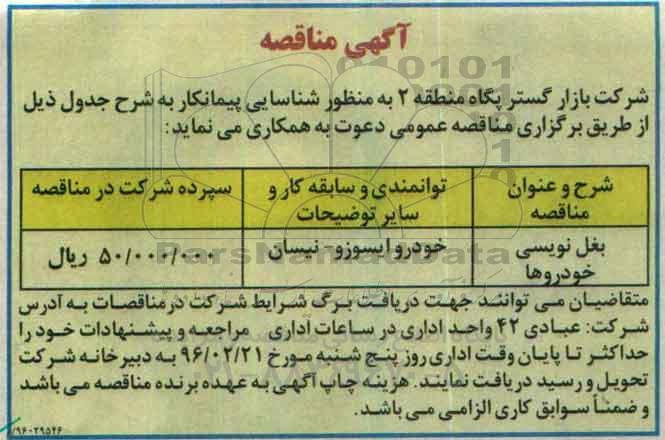 آگهی مناقصه
شرکت بازار گستر پگاه منطقه ۲ به منظور شناسایی پیمانکار به شرح جدول ذیل
از طریق برگزاری مناقصه عمومی دعوت به همکاری می نماید:
شرح و عنوان مناقصه
توانمندی و سابقه کار و سایر توضیحات
سپرده شرکت در مناقصه
بغل نویسی خودروها
خودرو ایسوزو- نیسان
۵۰/۰۰۰/۰۰۰ ریال
ParsNamadData
متقاضیان می توانند جهت دریافت برگ شرایط شرکت در مناقصات به آدرس
شرکت: عبادی ۴۲ واحد اداری در ساعات اداری مراجعه و پیشنهادات خود را
حداکثر تا پایان وقت اداری روز پنج شنبه مورخ ۹۶/۰۲/۲۱ به دبیرخانه شرکت
تحویل و رسید دریافت نمایند. هزینه چاپ آگهی به عهده برنده مناقصه می باشد
و ضمناً سوابق کاری الزامی می باشد.
/۹۶۰۲۹۵۴۶